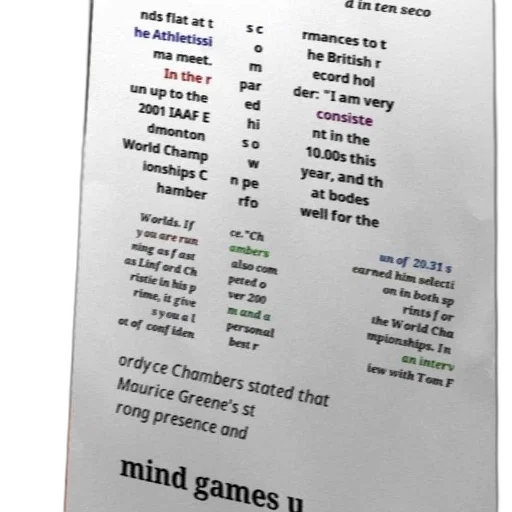 d in ten seco
nds flat at t
he Athletissi
ma meet.
In the r
un up to the
2001 IAAF E
dmonton
World Champ
ionships C
hamber
s c
o
m
par
ed
hi
s o
w
n pe
rfo
rmances to t
he British r
ecord hol
der: "I am very
consiste
nt in the
10.00s this
year, and th
at bodes
well for the
Worlds. If
you are run
ning as fast
as Linford Ch
ristie in his p
rime, it give
s you a l
ot of confiden
ce."Ch
ambers
also com
peted o
ver 200
m and a
personal
best r
un of 20.31 s
earned him selecti
on in both sp
rints for
the World Cha
mpionships. In
an interv
iew with Tom F
ordyce Chambers stated that
Maurice Greene's st
rong presence and
mind games u